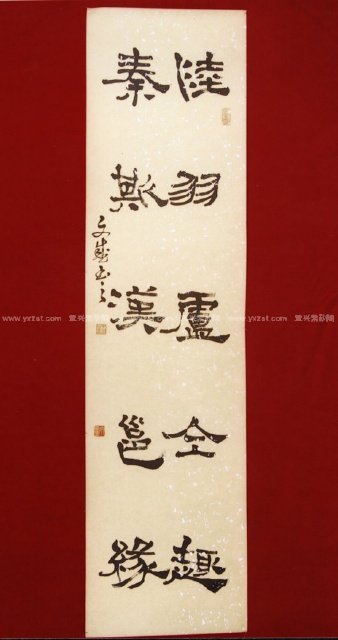 陸羽盧仝趣
秦斯漢邕緣
www.yxzst.com 宜兴紫砂陶 www.yxzst.com 宜兴紫砂陶